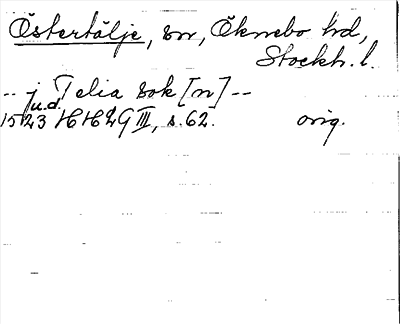 Östertälje, sn, Öknebo hd,
Stockh. l.
-- j Telia sok [n] --
u.d.
1523 HH2G III, s. 62. orig.